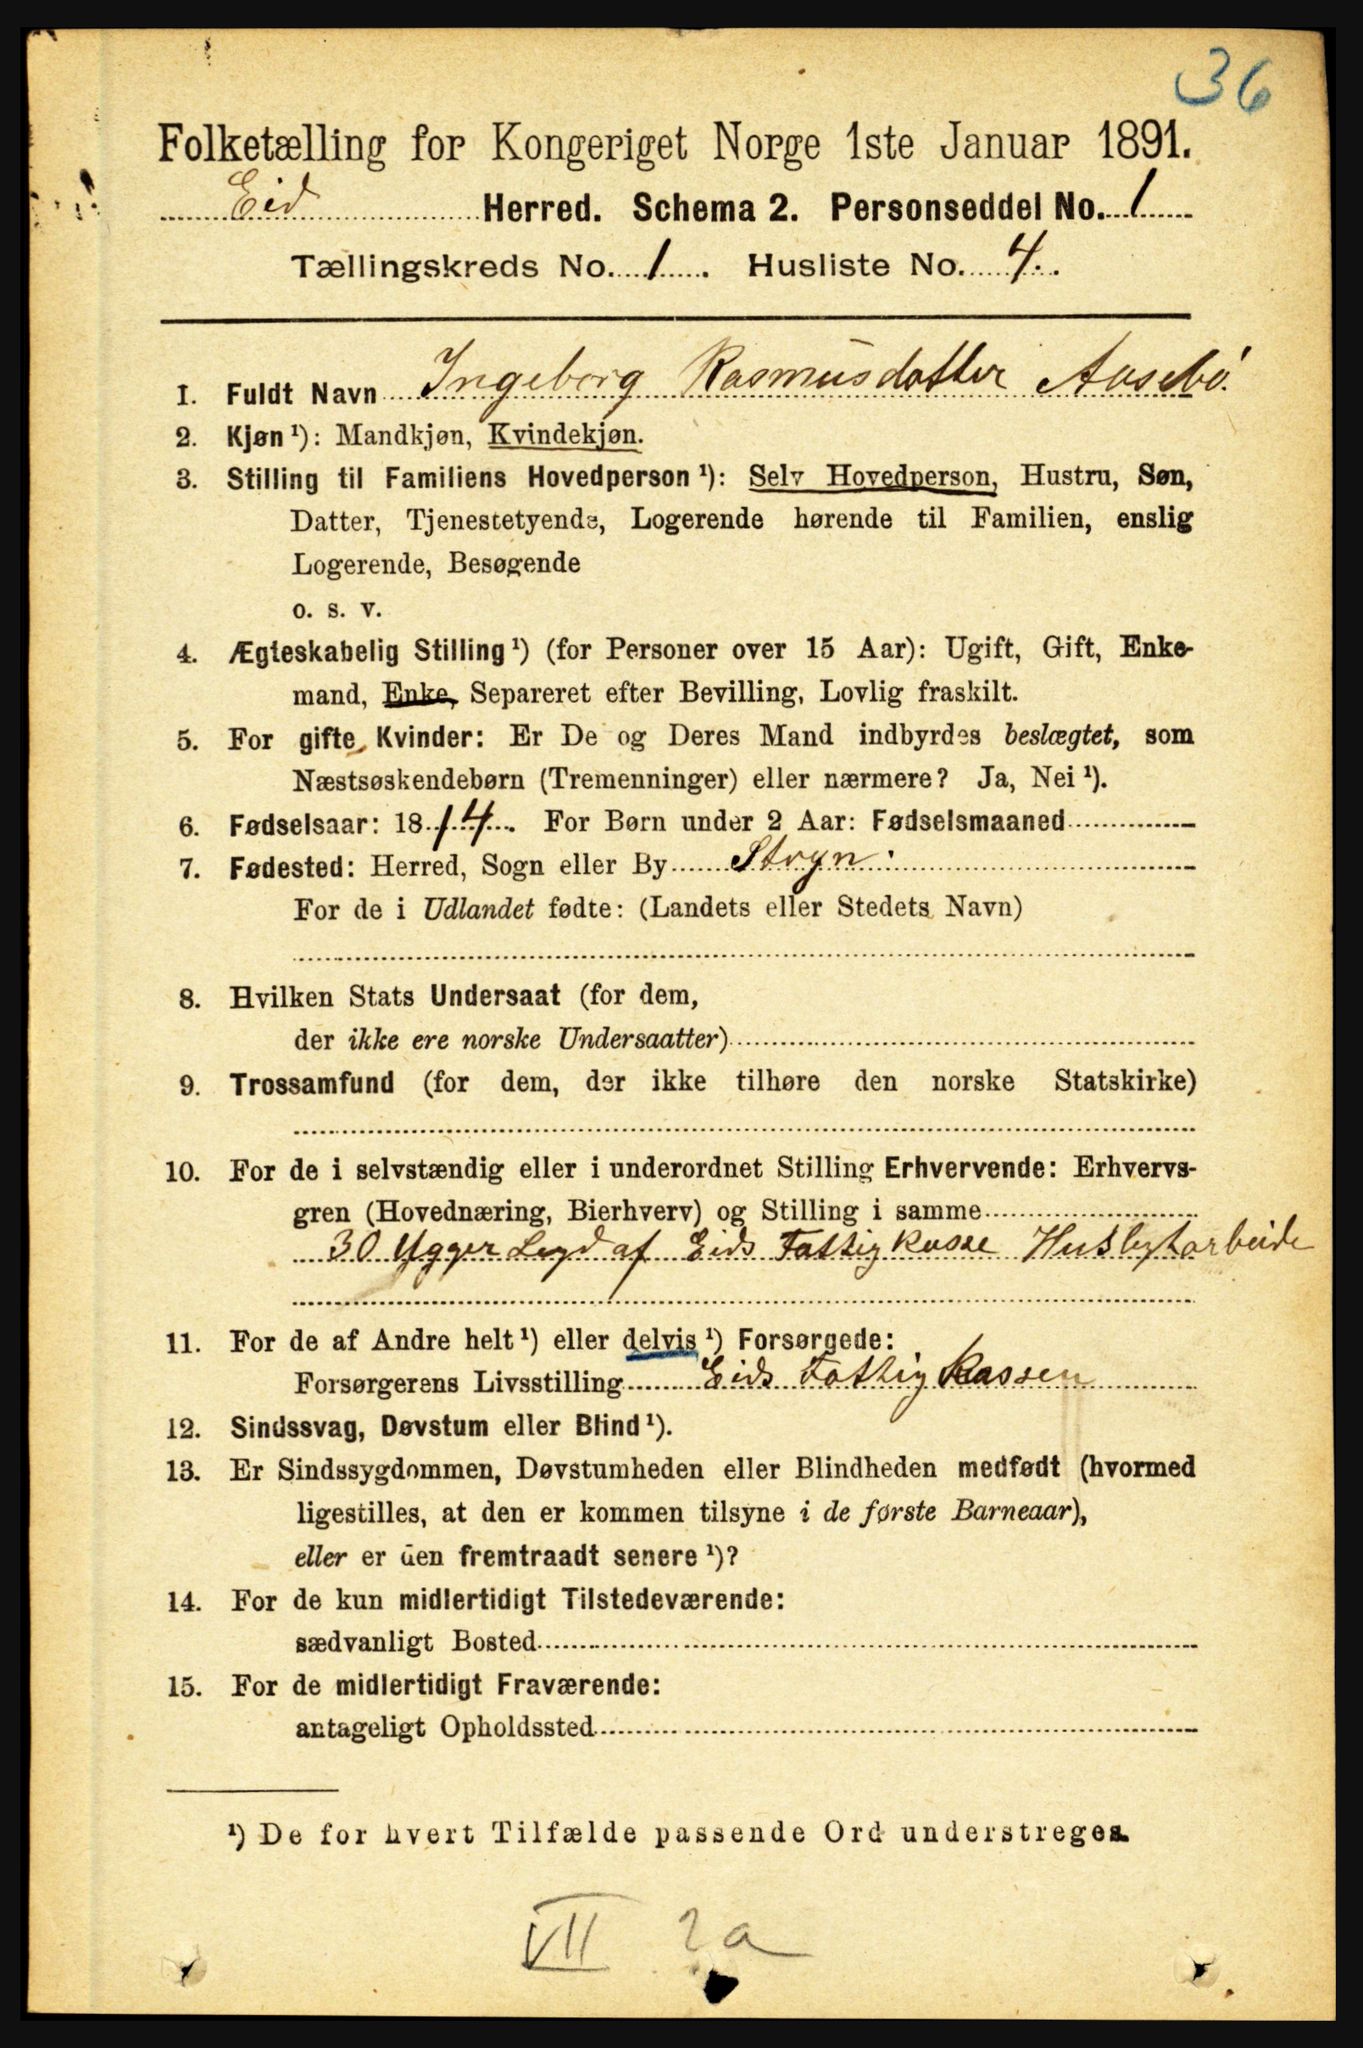 36
Folketælling for Kongeriget Norge 1ste Januar 1891.
Eid Herred. Schema 2. Personseddel No. 1
Tællingskreds No. 1. Husliste No. 4.
1. Fuldt Navn Ingeborg Rasmusdatter Aasebö.
2. Kjøn ¹): Mandkjøn, Kvindekjøn.
3. Stilling til Familiens Hovedperson ¹): Selv Hovedperson, Hustru, Søn,
Datter, Tjenestetyende, Logerende hørende til Familien, enslig
Logerende, Besøgende
o. s. v.
4. Ægteskabelig Stilling ¹) (for Personer over 15 Aar): Ugift, Gift, Enke-
mand, Enke, Separeret efter Bevilling, Lovlig fraskilt.
5. For gifte Kvinder: Er De og Deres Mand indbyrdes beslægtet, som
Næstsøskendebørn (Tremenninger) eller nærmere? Ja, Nei ¹).
6. Fødselsaar: 1814. For Børn under 2 Aar: Fødselsmaaned
7. Fødested: Herred, Sogn eller By Stryn.
For de i Udlandet fødte: (Landets eller Stedets Navn)
8. Hvilken Stats Undersaat (for dem,
der ikke ere norske Undersaatter)
9. Trossamfund (for dem, der ikke tilhøre den norske Statskirke)
10. For de i selvstændig eller i underordnet Stilling Erhvervende: Erhvervs-
gren (Hovednæring, Bierhverv) og Stilling i samme
30 Lægd af Eids Fattigkasse
11. For de af Andre helt ¹) eller delvis ¹) Forsørgede:
Forsørgerens Livsstilling Eids Fattigkassen
12. Sindssvag, Døvstum eller Blind ¹).
13. Er Sindssygdommen, Døvstumheden eller Blindheden medfødt (hvormed
ligestilles, at den er kommen tilsyne i de første Barneaar),
eller er den fremtraadt senere ¹)?
14. For de kun midlertidigt Tilstedeværende:
sædvanligt Bosted
15. For de midlertidigt Fraværende:
antageligt Opholdssted
¹) De for hvert Tilfælde passende Ord understreges.
VII 2a